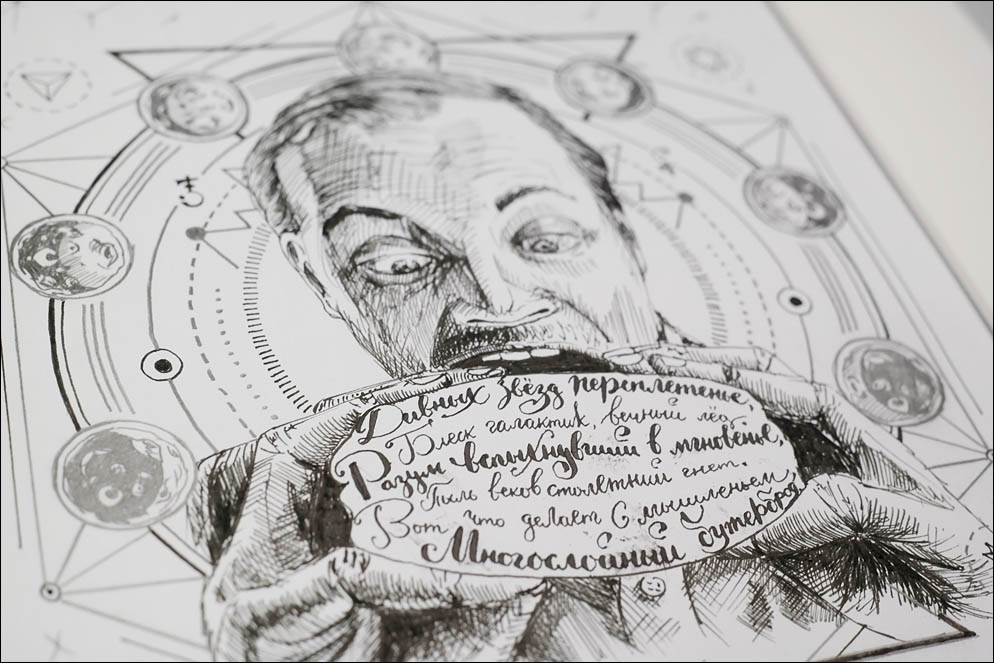 Дивных звёзд переплетенье,
Блеск галактик, вечный лёд.
Разум вспыхнувший в мгновенье,
Пыль веков столетний гнет.
Вот что делает с мышленьем
Многослойный бутерброд